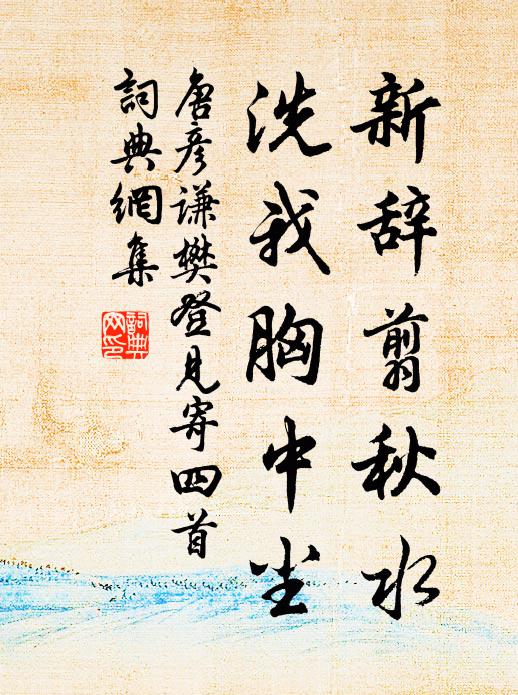 新辞翦秋水
洗我胸中尘
唐彦谦樊登见寄四首
詞典網集
詞典网印